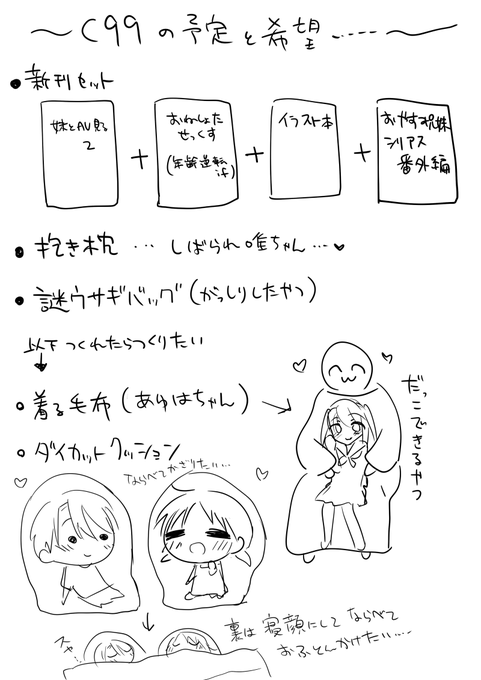 ～C99の予定と希望‥‥～
●新刊セット
妹とAV見る
2
+
おねしょた
せっくす
(年齢逆転
+
イラスト本
+
おやすみ
シリアス
番外編
●抱き枕 … しばられ唯ちゃん…♥
●謎ウサギバッグ(がっしりしたやつ)
以下つくれたらつくりたい
↓
●着る毛布(あゆはちゃん)→
だっこできるやつ
○ダイカットクッション
ならべてかざりたい…
↓
裏は寝顔にしてならべて
おふとんかけたい‥‥
スヤ